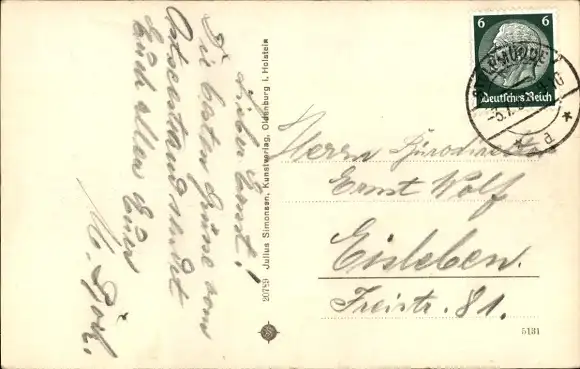 Lieber Ernst!
Die besten Grüsse vom
Ostseestrand sendet
Euch allen Euer
M.
20789 Julius Simonsen, Kunstverlag, Oldenburg i. Holstein
6 6
Deutsches Reich
a
Herrn Bürodirektor
Ernst Wolf
Eisleben.
Freistr. 81.
5131